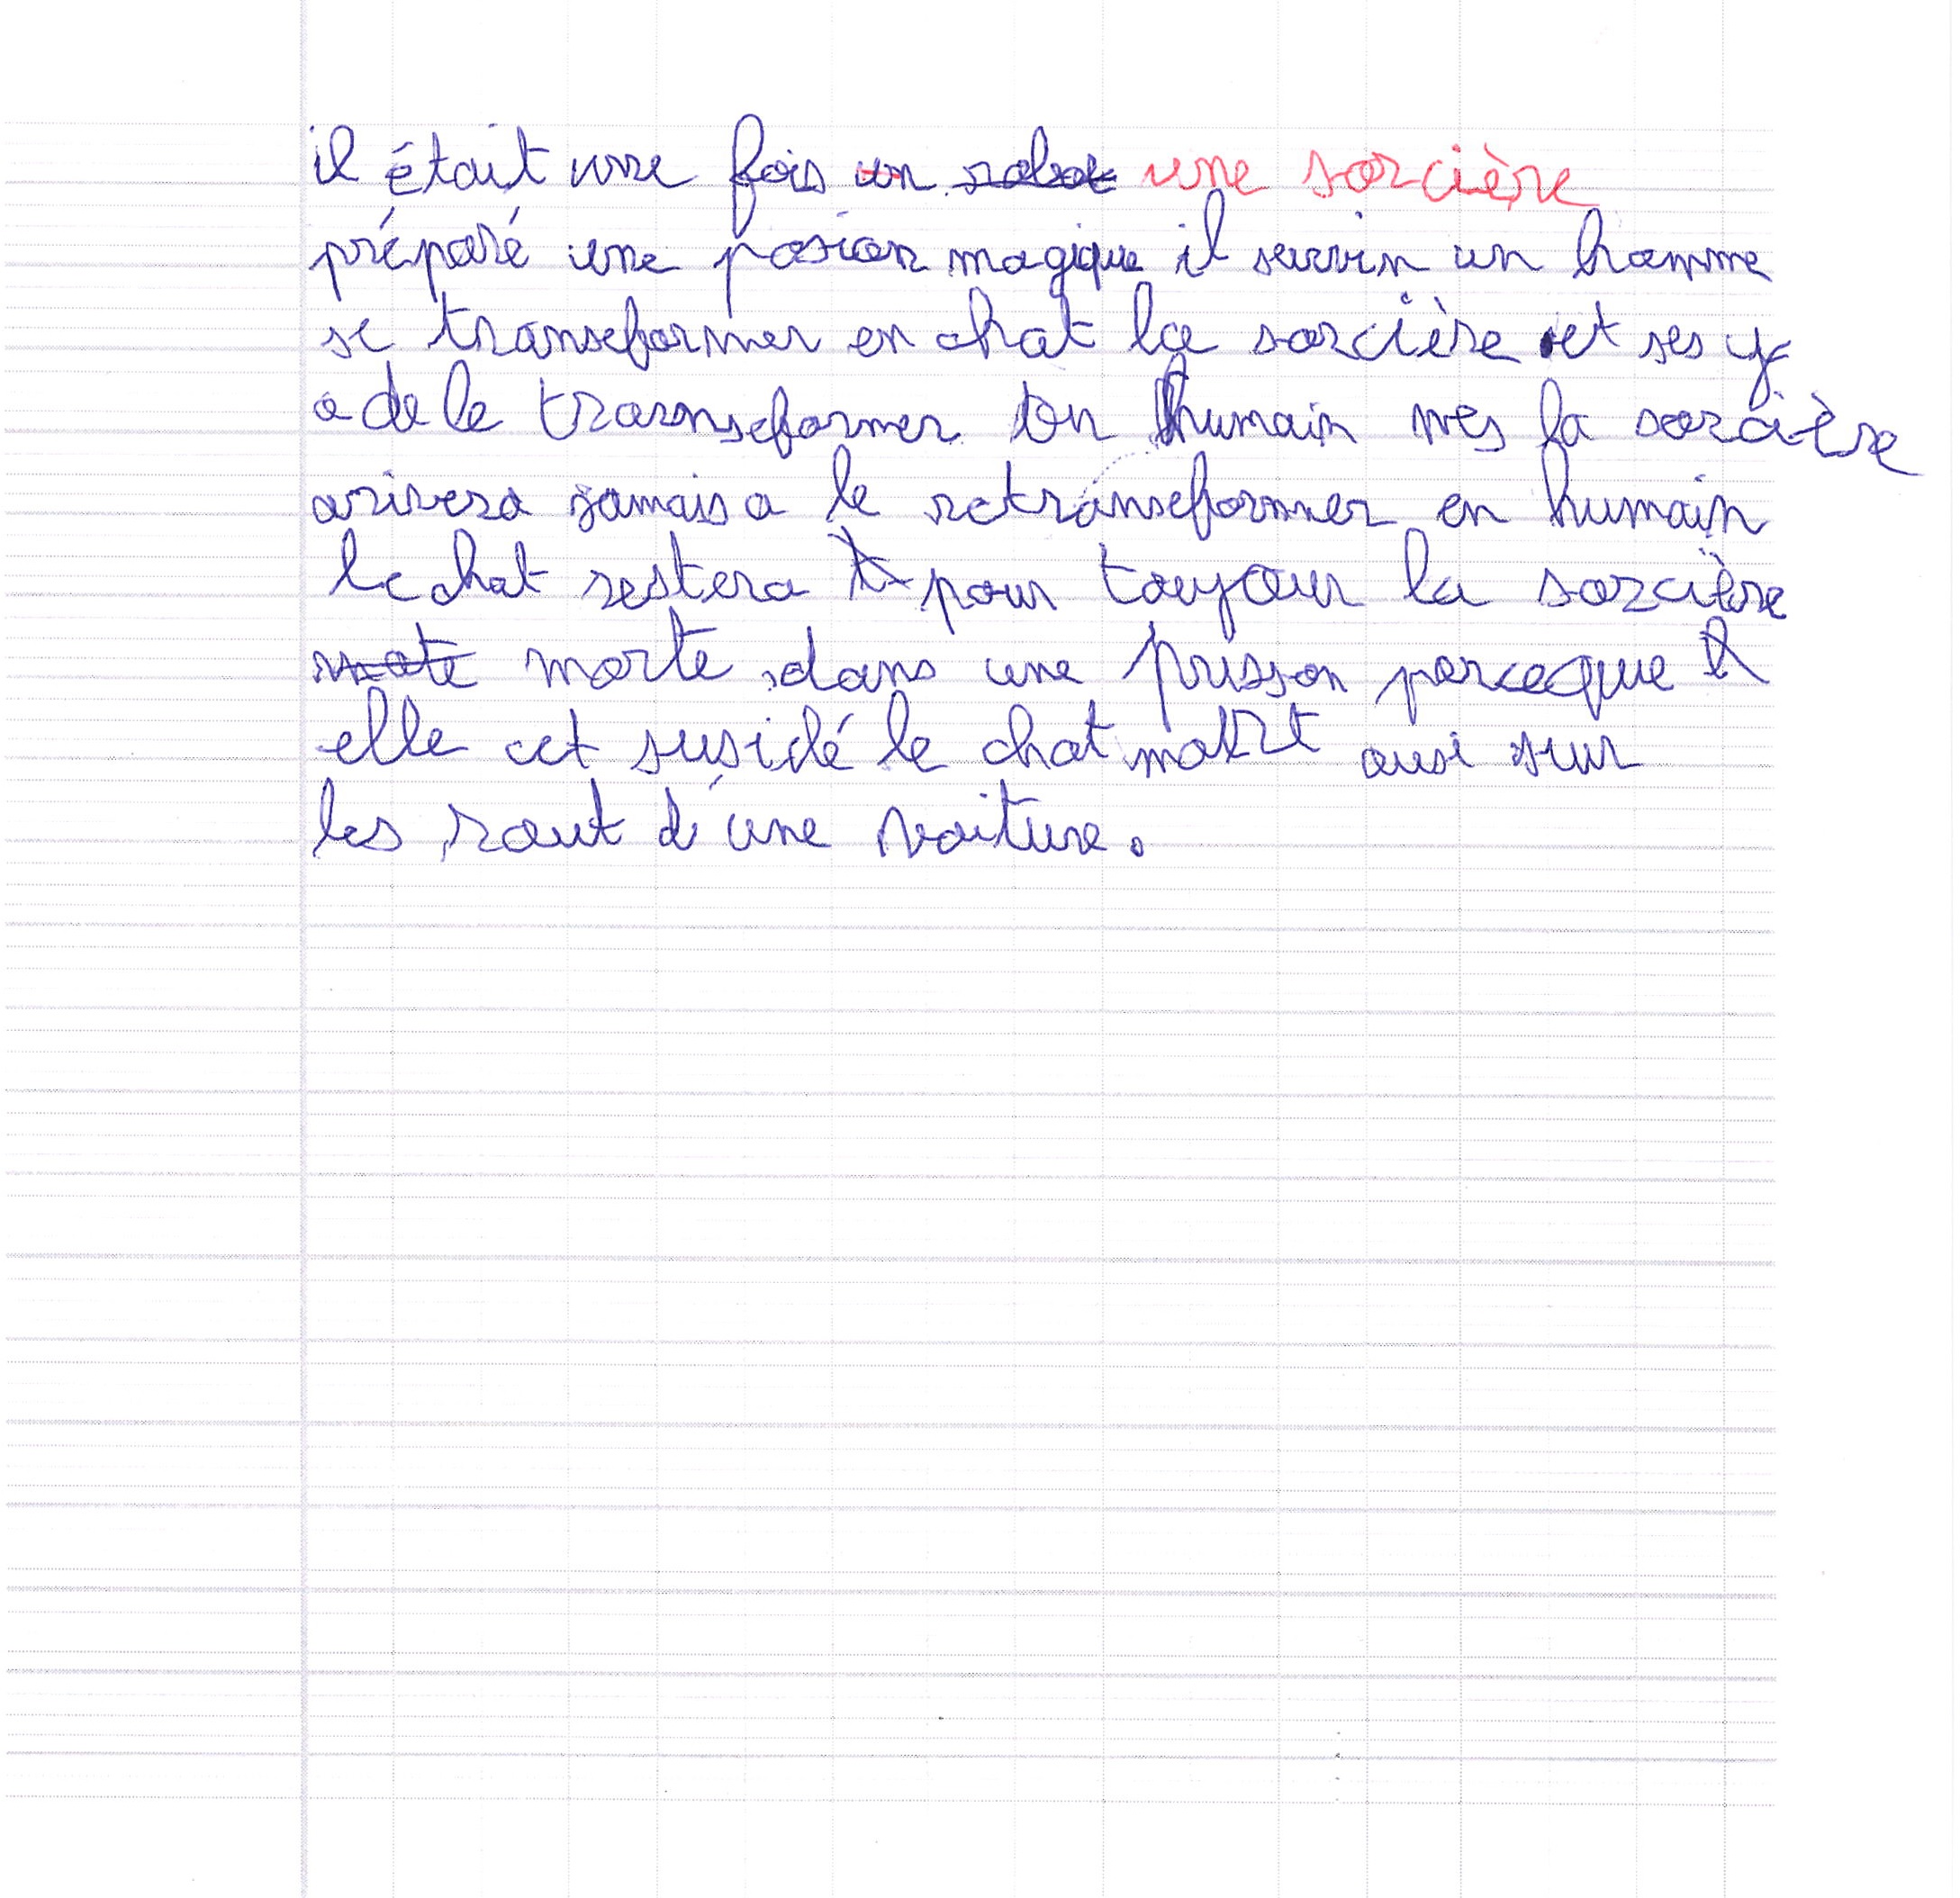 il était une fois un robot une sorcière
préparé une posion magique il survin un homme
se transeformer en chat la sorcière et ses y
a de le transeformer en humain mes la sorcière
arivera jamais a le retranseformer en humain
le chat restera pour toujour la sorcière
morte dans une prisson parceque
elle cet susidé le chat mort ausi sur
les rout d'une voiture.